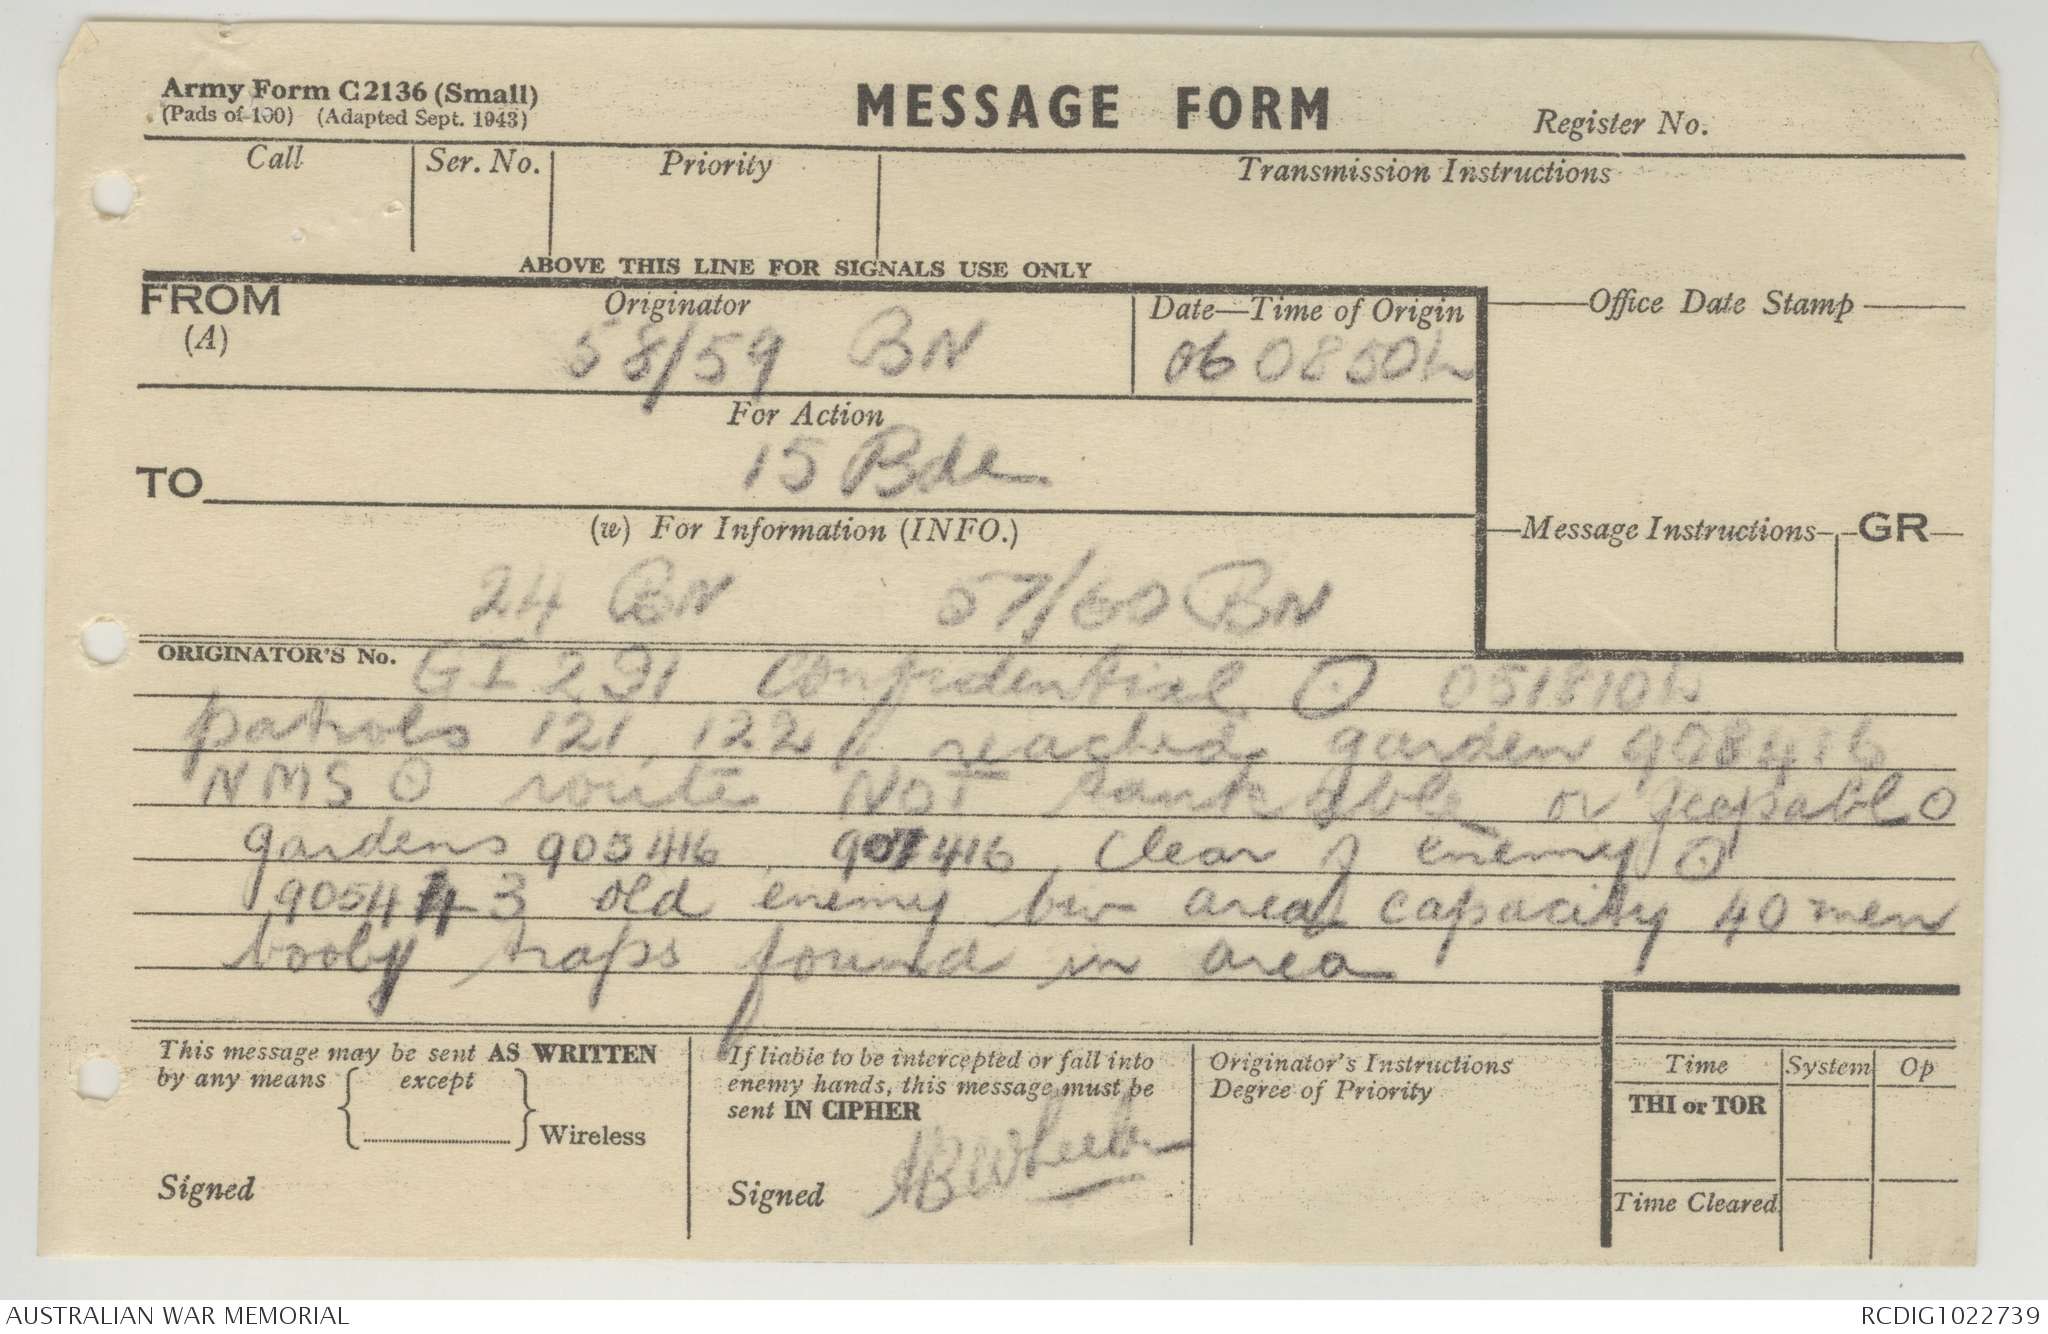 Army Form C2136 (Small)
(Pads of 100) (Adapted Sept. 1943)
MESSAGE FORM
Register No.
Call
Ser. No.
Priority
Transmission Instructions
ABOVE THIS LINE FOR SIGNALS USE ONLY
FROM
(A)
Originator
58/59 BN
Date—Time of Origin
060850L
Office Date Stamp
For Action
15 Bde
TO
(w) For Information (INFO.)
24 BN 57/60 BN
Message Instructions
GR
ORIGINATOR'S No.
GI 291 Confidential ⊙ 051810L
patrols 121, 122 reached garden 908416
NMS ⊙ route NOT tank able or jeepable ⊙
gardens 905416 907416 clear of enemy ⊙
905443 old enemy biv area capacity 40 men
booby traps found in area
This message may be sent AS WRITTEN
by any means except
Wireless
Signed
If liable to be intercepted or fall into
enemy hands, this message must be
sent IN CIPHER
Signed
Originator's Instructions
Degree of Priority
Time
System
Op
THI or TOR
Time Cleared
AUSTRALIAN WAR MEMORIAL
RCDIG1022739